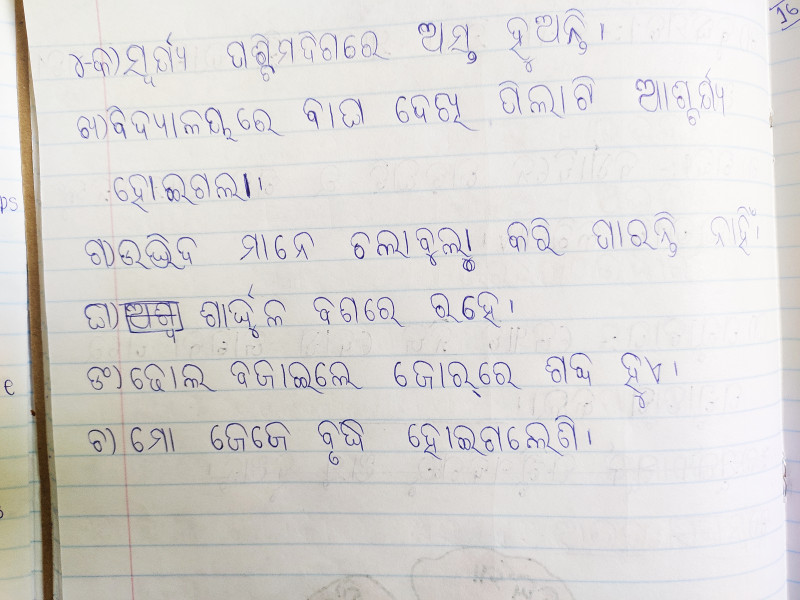 16
୪-କ) ସୂର୍ଯ୍ୟ ପଶ୍ଚିମଦିଗରେ ଅସ୍ତ ହୁଅନ୍ତି।
ଖ) ବିଦ୍ୟାଳୟରେ ବାଘ ଦେଖି ପିଲାଟି ଆଶ୍ଚର୍ଯ୍ୟ
ହୋଇଗଲା।
ଗ) ଉଦ୍ଭିଦ ମାନେ ଚଲାବୁଲା କରି ପାରନ୍ତି ନାହିଁ।
ଘ) ଶାର୍ଦ୍ଦୁଳ ବଣରେ ରହେ।
ଙ) ଢୋଲ ବଜାଇଲେ ଜୋର୍‌ରେ ଶବ୍ଦ ହୁଏ।
ଚ) ମୋ ଜେଜେ ବୃଦ୍ଧ ହୋଇଗଲେଣି।